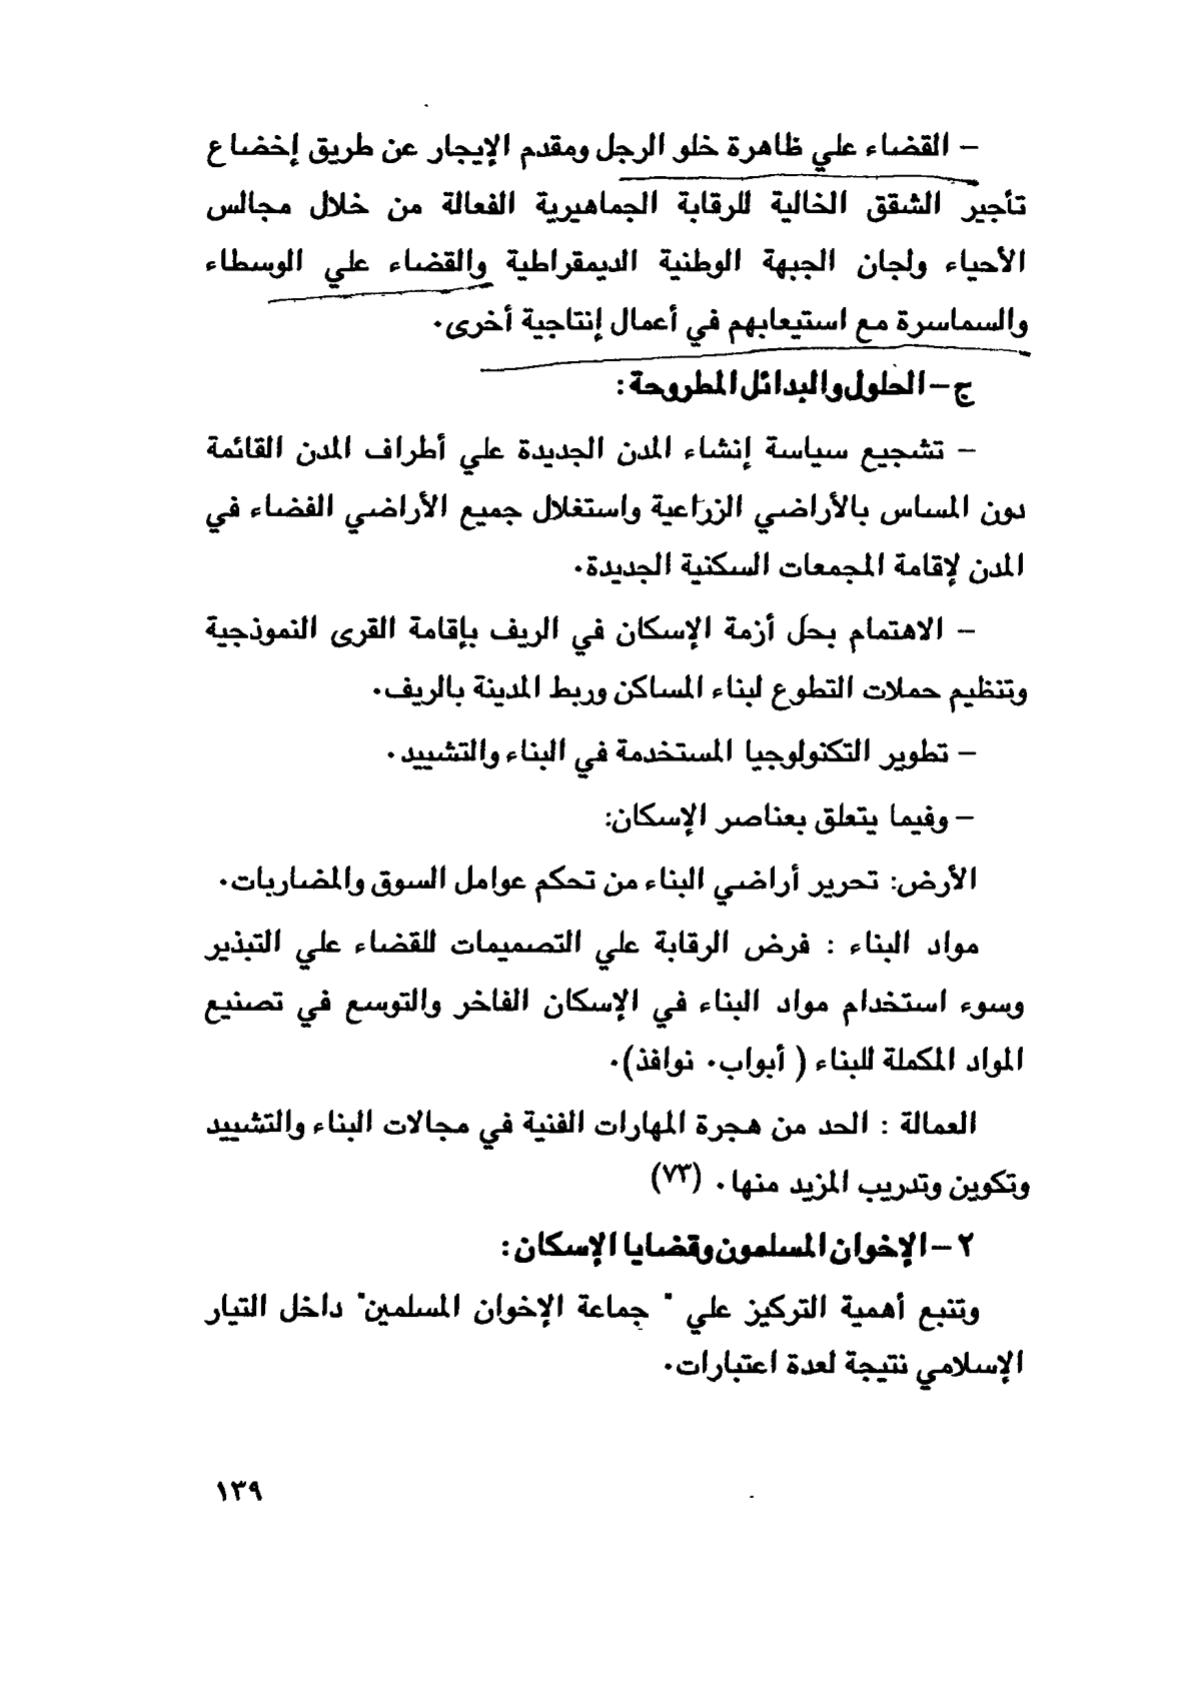 – القضاء علي ظاهرة خلو الرجل ومقدم الإيجار عن طريق إخضاع
تأجير الشقق الخالية للرقابة الجماهيرية الفعالة من خلال مجالس
الأحياء ولجان الجبهة الوطنية الديمقراطية والقضاء علي الوسطاء
والسماسرة مع استيعابهم في أعمال إنتاجية أخرى.
ج – الحلول والبدائل المطروحة:
– تشجيع سياسة إنشاء المدن الجديدة علي أطراف المدن القائمة
دون المساس بالأراضي الزراعية واستغلال جميع الأراضي الفضاء في
المدن لإقامة المجمعات السكنية الجديدة.
– الاهتمام بحل أزمة الإسكان في الريف بإقامة القرى النموذجية
وتنظيم حملات التطوع لبناء المساكن وربط المدينة بالريف.
– تطوير التكنولوجيا المستخدمة في البناء والتشييد.
– وفيما يتعلق بعناصر الإسكان:
الأرض: تحرير أراضي البناء من تحكم عوامل السوق والمضاربات.
مواد البناء : فرض الرقابة علي التصميمات للقضاء علي التبذير
وسوء استخدام مواد البناء في الإسكان الفاخر والتوسع في تصنيع
المواد المكملة للبناء ( أبواب. نوافذ).
العمالة : الحد من هجرة المهارات الفنية في مجالات البناء والتشييد
وتكوين وتدريب المزيد منها. (٧٣)
٢ – الإخوان المسلمون وقضايا الإسكان:
وتنبع أهمية التركيز علي " جماعة الإخوان المسلمين" داخل التيار
الإسلامي نتيجة لعدة اعتبارات.
١٣٩